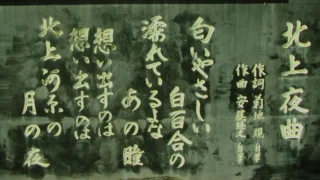 北上夜曲
作詞 菊地 規
作曲 安藤睦夫
匂いやさしい
白百合の
濡れているよな
あの瞳
想い出すのは
想い出すのは
北上河原の
月の夜